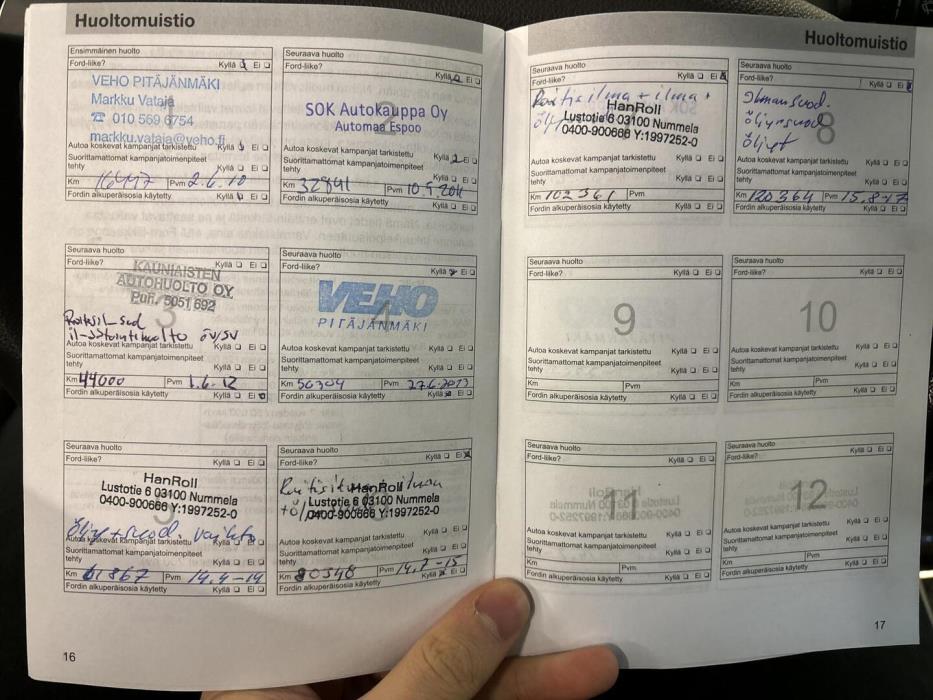 Huoltomuistio
Ensimmäinen huolto
Ford-liike? Kyllä Ei
VEHO PITÄJÄNMÄKI
Markku Vataja
☎ 010 569 6754
markku.vataja@veho.fi
Autoa koskevat kampanjat tarkistettu Kyllä Ei
Suorittamattomat kampanjatoimenpiteet
tehty Kyllä Ei
Km Pvm 2.6.10
Fordin alkuperäisosia käytetty Kyllä Ei
Seuraava huolto
Ford-liike? Kyllä Ei
2
SOK Autokauppa Oy
Automaa Espoo
Autoa koskevat kampanjat tarkistettu Kyllä Ei
Suorittamattomat kampanjatoimenpiteet
tehty Kyllä Ei
Km 32841 Pvm
Fordin alkuperäisosia käytetty Kyllä Ei
Seuraava huolto
Ford-liike? Kyllä Ei
KAUNIAISTEN
AUTOHUOLTO OY
Puh. 5051 692
3
öv/sv
Autoa koskevat kampanjat tarkistettu Kyllä Ei
Suorittamattomat kampanjatoimenpiteet
tehty Kyllä Ei
Km 44000 Pvm 1.6.12
Fordin alkuperäisosia käytetty Kyllä Ei
Seuraava huolto
Ford-liike? Kyllä Ei
VEHO
PITÄJÄNMÄKI
4
Autoa koskevat kampanjat tarkistettu Kyllä Ei
Suorittamattomat kampanjatoimenpiteet
tehty Kyllä Ei
Km 56304 Pvm 27.6.2013
Fordin alkuperäisosia käytetty Kyllä Ei
Seuraava huolto
Ford-liike? Kyllä Ei
HanRoll
Lustotie 6 03100 Nummela
0400-900666 Y:1997252-0
Autoa koskevat kampanjat tarkistettu Kyllä Ei
Suorittamattomat kampanjatoimenpiteet
tehty Kyllä Ei
Km 61867 Pvm 14.4-14
Fordin alkuperäisosia käytetty Kyllä Ei
Seuraava huolto
Ford-liike? Kyllä Ei
HanRoll
Lustotie 6 03100 Nummela
0400-900666 Y:1997252-0
Autoa koskevat kampanjat tarkistettu Kyllä Ei
Suorittamattomat kampanjatoimenpiteet
tehty Kyllä Ei
Km 80348 Pvm 14.7-15
Fordin alkuperäisosia käytetty Kyllä Ei
16
Huoltomuistio
Seuraava huolto
Ford-liike? Kyllä Ei
Raitisilma + ilma +
HanRoll
Lustotie 6 03100 Nummela
0400-900666 Y:1997252-0
Autoa koskevat kampanjat tarkistettu Kyllä Ei
Suorittamattomat kampanjatoimenpiteet
tehty Kyllä Ei
Km 102361 Pvm
Fordin alkuperäisosia käytetty Kyllä Ei
Seuraava huolto
Ford-liike? Kyllä Ei
Ilmansuod.
öljynsuod
öljyt
8
Autoa koskevat kampanjat tarkistettu Kyllä Ei
Suorittamattomat kampanjatoimenpiteet
tehty Kyllä Ei
Km 120364 Pvm 15.8-17
Fordin alkuperäisosia käytetty Kyllä Ei
Seuraava huolto
Ford-liike? Kyllä Ei
9
Autoa koskevat kampanjat tarkistettu Kyllä Ei
Suorittamattomat kampanjatoimenpiteet
tehty Kyllä Ei
Km Pvm
Fordin alkuperäisosia käytetty Kyllä Ei
Seuraava huolto
Ford-liike? Kyllä Ei
10
Autoa koskevat kampanjat tarkistettu Kyllä Ei
Suorittamattomat kampanjatoimenpiteet
tehty Kyllä Ei
Km Pvm
Fordin alkuperäisosia käytetty Kyllä Ei
Seuraava huolto
Ford-liike? Kyllä Ei
11
Autoa koskevat kampanjat tarkistettu Kyllä Ei
Suorittamattomat kampanjatoimenpiteet
tehty Kyllä Ei
Km Pvm
Fordin alkuperäisosia käytetty Kyllä Ei
Seuraava huolto
Ford-liike? Kyllä Ei
12
Autoa koskevat kampanjat tarkistettu Kyllä Ei
Suorittamattomat kampanjatoimenpiteet
tehty Kyllä Ei
Km Pvm
Fordin alkuperäisosia käytetty Kyllä Ei
17